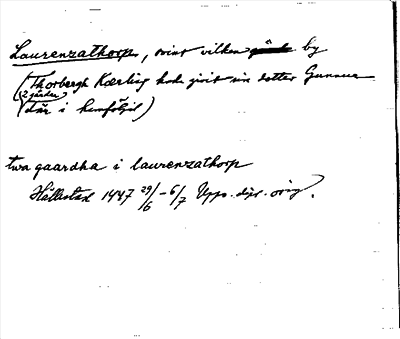 Laurenzathorp, ovint vilken by
(Thorbergh Kærling hade givit sin dotter Gunnur
2 gårdar
där i hemföljd)
twa gaardha i laurenzathorp
Hällestad 1447 29/6 – 6/7 Upps. dipl. orig.